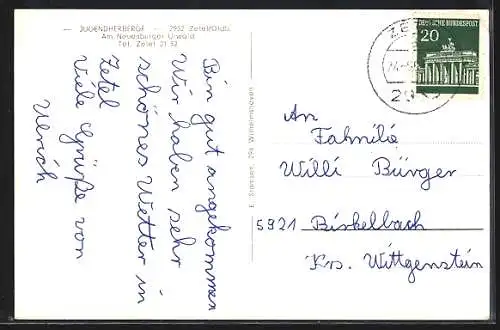 — JUGENDHERBERGE — 2932 Zetel/Oldb.
Am Neuenburger Urwald
Tel. Zetel 21 32
Bin gut angekommen
Wir haben sehr
schönes Wetter in
Zetel
Viele Grüße von
Ulrich
DEUTSCHE BUNDESPOST
20
An
Fahmilie
Willi Bürger
5921 Birkelbach
Krs. Wittgenstein